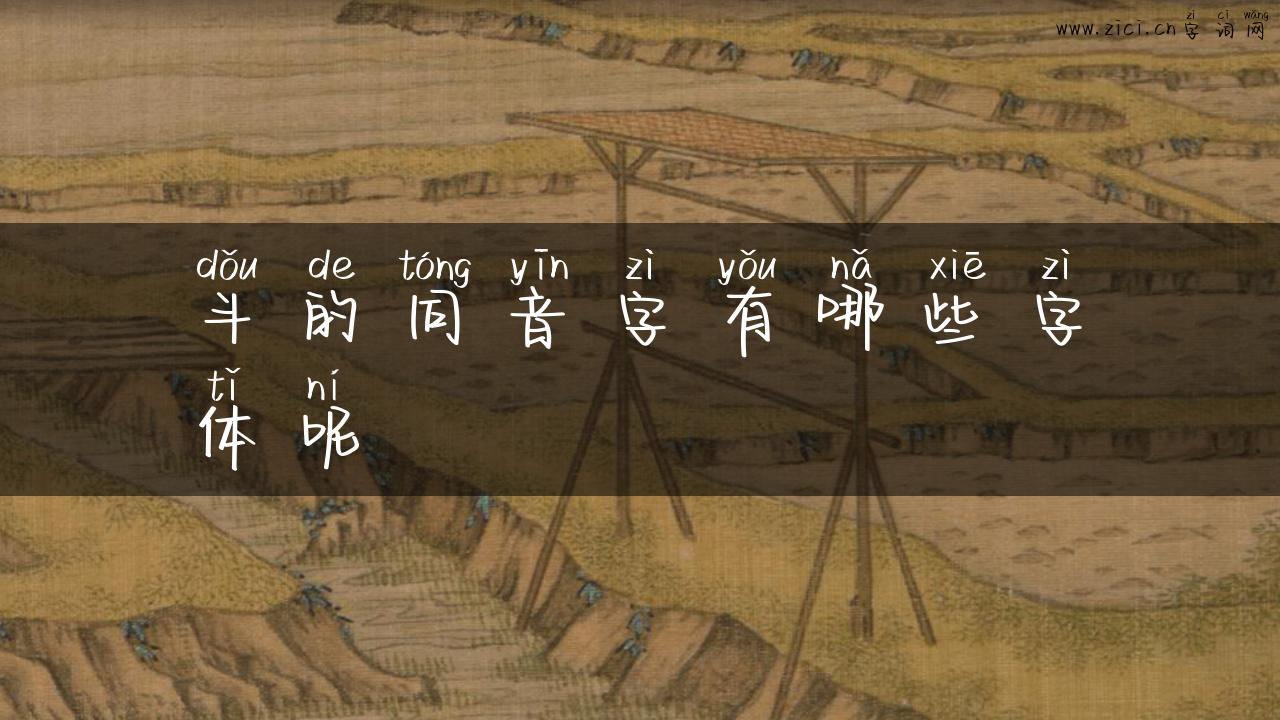 zì cí wǎng
www.zici.cn 字词网
dǒu de tóng yīn zì yǒu nǎ xiē zì
斗的同音字有哪些字
tǐ ní
体呢